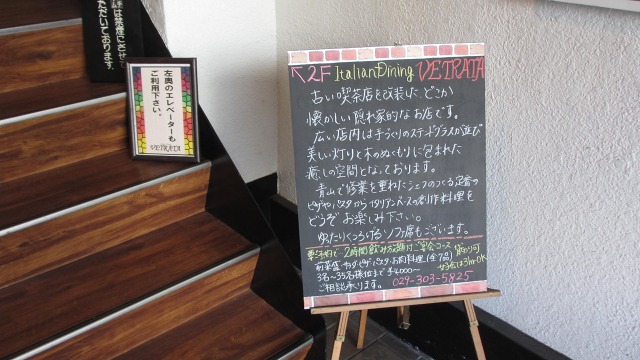 は禁煙にさせて
ただいております。
左奥のエレベーターも
ご利用下さい。
VETRATA
↖2F Italian Dining VETRATA
古い喫茶店を改装した どこか
懐かしい隠れ家的なお店です。
広い店内は手づくりのステンドグラスが並び
美しい灯りと木のぬくもりに包まれた
癒しの空間となっております。
青山で修業を重ねたシェフのつくる定番の
ピザや、パスタからイタリアンベースの創作料理を
どうぞお楽しみ下さい。
ゆったりくつろげるソファ席もございます。
要予約で 2時間飲み放題付ご宴会コース
前菜盛・サラダ・ピザ・パスタ・お肉料理(全7品)
3名〜35名様位まで ¥4000〜
ご相談承ります。
貸切り可
029-303-5825